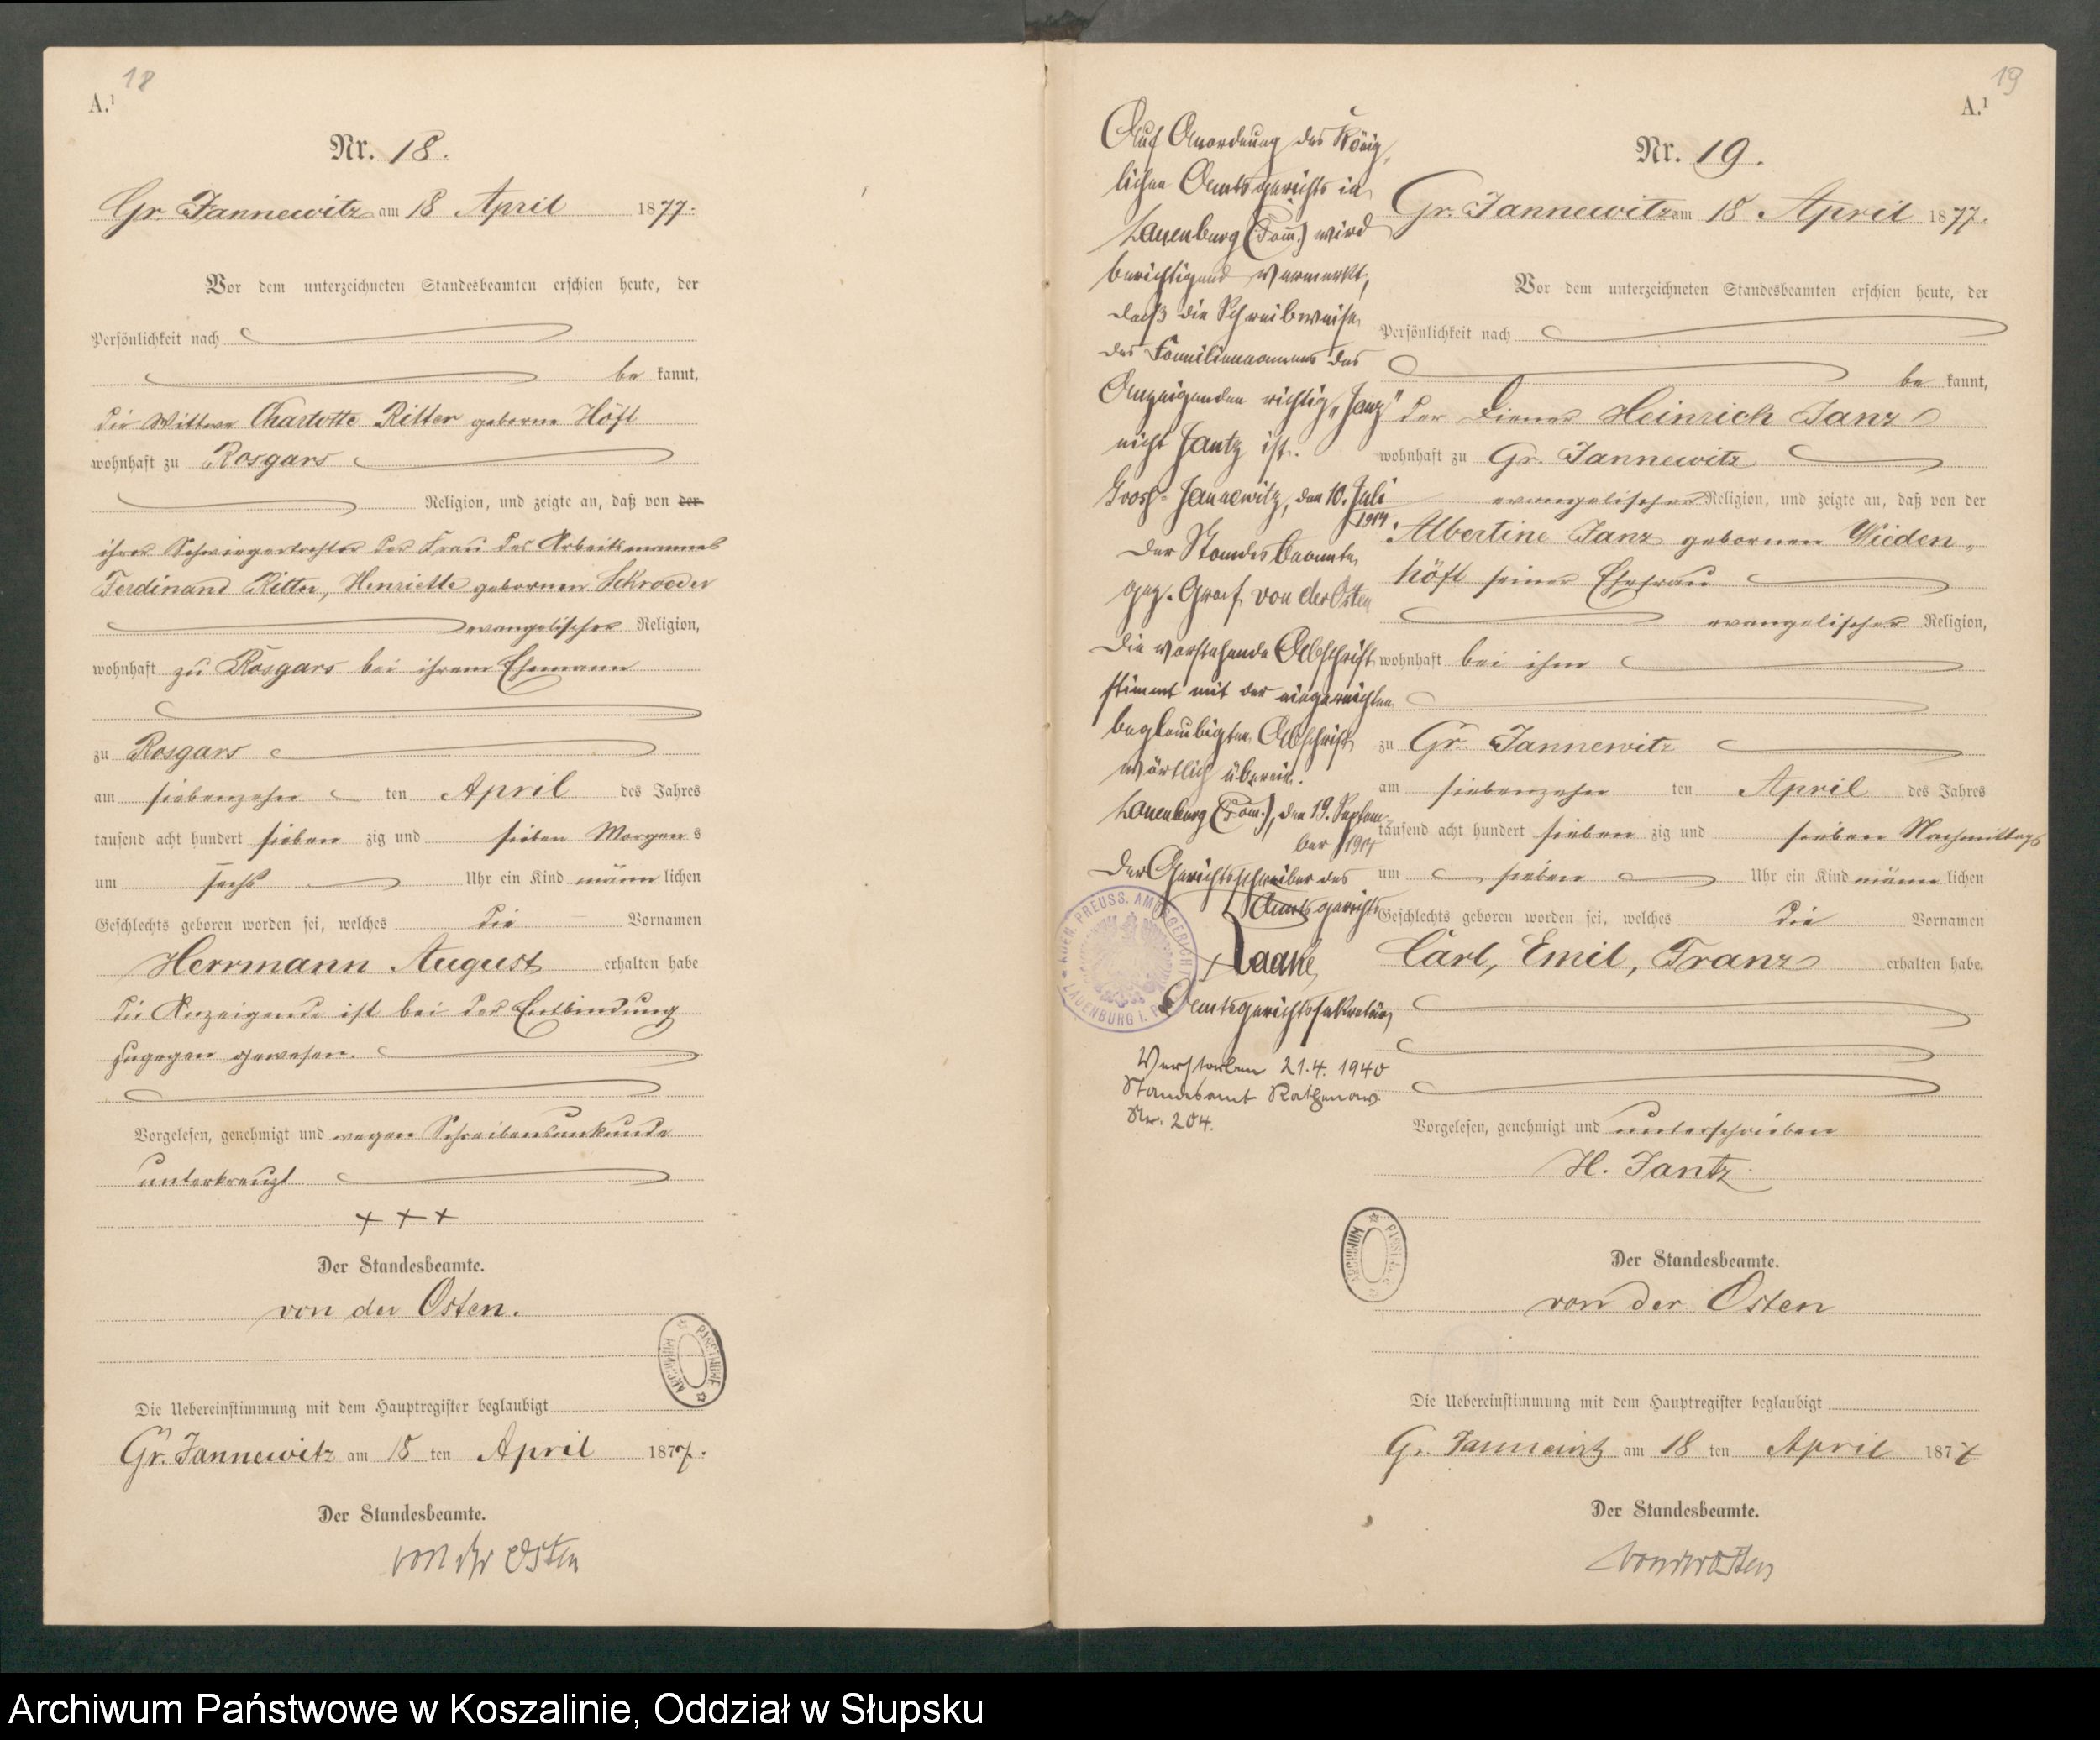 18
A.¹
Nr. 18.
Gr. Jannewitz am 18 April 1877.
Vor dem unterzeichneten Standesbeamten erschien heute, der
Persönlichkeit nach
be kannt,
die Wittwe Charlotte Ritter geborne Höft
wohnhaft zu Rosgars
Religion, und zeigte an, daß von der
ihrer Schwiegertochter der Frau des Arbeitsmannes
Ferdinand Ritter, Henriette gebornen Schroeder
evangelischer Religion,
wohnhaft zu Rosgars bei ihrem Ehemann
zu Rosgars
am siebenzehn ten April des Jahres
tausend acht hundert sieben zig und sieben Morgens
um sechs Uhr ein Kind männ lichen
Geschlechts geboren worden sei, welches die Vornamen
Herrmann August erhalten habe
die Anzeigende ist bei der Entbindung
zugegen gewesen.
Vorgelesen, genehmigt und wegen Schreibensunkunde
unterkreuzt
+ + +
Der Standesbeamte.
von der Osten.
Die Uebereinstimmung mit dem Hauptregister beglaubigt
Gr. Jannewitz am 18 ten April 1877.
Der Standesbeamte.
von der Osten
Auf Anordnung des König-
lichen Amtsgerichts in
Lauenburg (Pom.) wird
berichtigend vermerkt,
daß die Schreibweise
des Familiennamens des
Anzeigenden richtig "Janz"
nicht Jantz ist.
Gross-Jannewitz, den 10. Juli
1914.
Der Standesbeamte,
gez. Graf von der Osten
Die vorstehende Abschrift
stimmt mit der eingereichten
beglaubigten Abschrift
wörtlich überein.
Lauenburg (Pom.), den 19. Septem-
ber 1914
Der Gerichtsschreiber des
Amtsgerichts
Raaske,
Amtsgerichtssekretär
KÖNIGL. PREUSS. AMTSGERICHT
LAUENBURG i. P.
Verstorben 21.4.1940
Standesamt Rathenow
Nr. 204.
19
A.¹
Nr. 19.
Gr. Jannewitz am 18 April 1877.
Vor dem unterzeichneten Standesbeamten erschien heute, der
Persönlichkeit nach
be kannt,
der Diener Heinrich Janz
wohnhaft zu Gr. Jannewitz
evangelischer Religion, und zeigte an, daß von der
Albertine Janz gebornen Wieden-
höft seiner Ehefrau
evangelischer Religion,
wohnhaft bei ihm
zu Gr. Jannewitz
am siebenzehn ten April des Jahres
tausend acht hundert sieben zig und sieben Nachmittags
um sieben Uhr ein Kind männ lichen
Geschlechts geboren worden sei, welches die Vornamen
Carl, Emil, Franz erhalten habe.
Vorgelesen, genehmigt und unterschrieben
H. Jantz
ARCHIWUM PAŃSTWOWE
Der Standesbeamte.
von der Osten
Die Uebereinstimmung mit dem Hauptregister beglaubigt
Gr. Jannewitz am 18 ten April 1877
Der Standesbeamte.
von der Osten
ARCHIWUM PAŃSTWOWE
Archiwum Państwowe w Koszalinie, Oddział w Słupsku